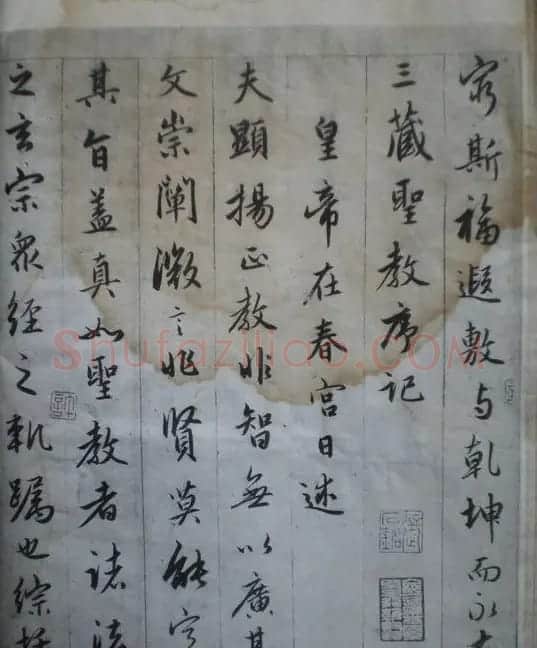 窮斯福遐敷与乾坤而永
三藏聖教序記
皇帝在春宮日述
夫顯揚正教非智無以廣其
文崇闡微言非賢莫能定
其旨盖真如聖教者諸法
之玄宗衆經之軌躅也綜
Shufaziliao.COM